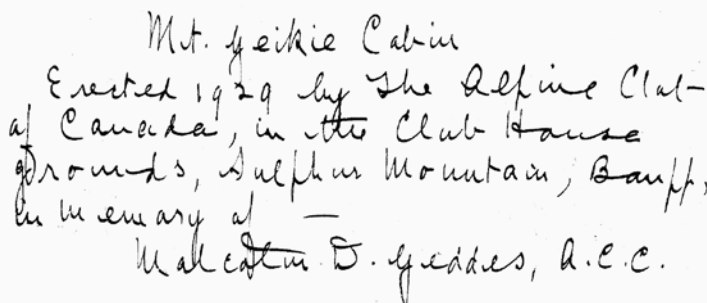 Mt. Geikie Cabin
Erected 1929 by The Alpine Club
of Canada, in the Club House
grounds, Sulphur Mountain, Banff,
in memory of —
Malcolm D. Geddes, A.C.C.